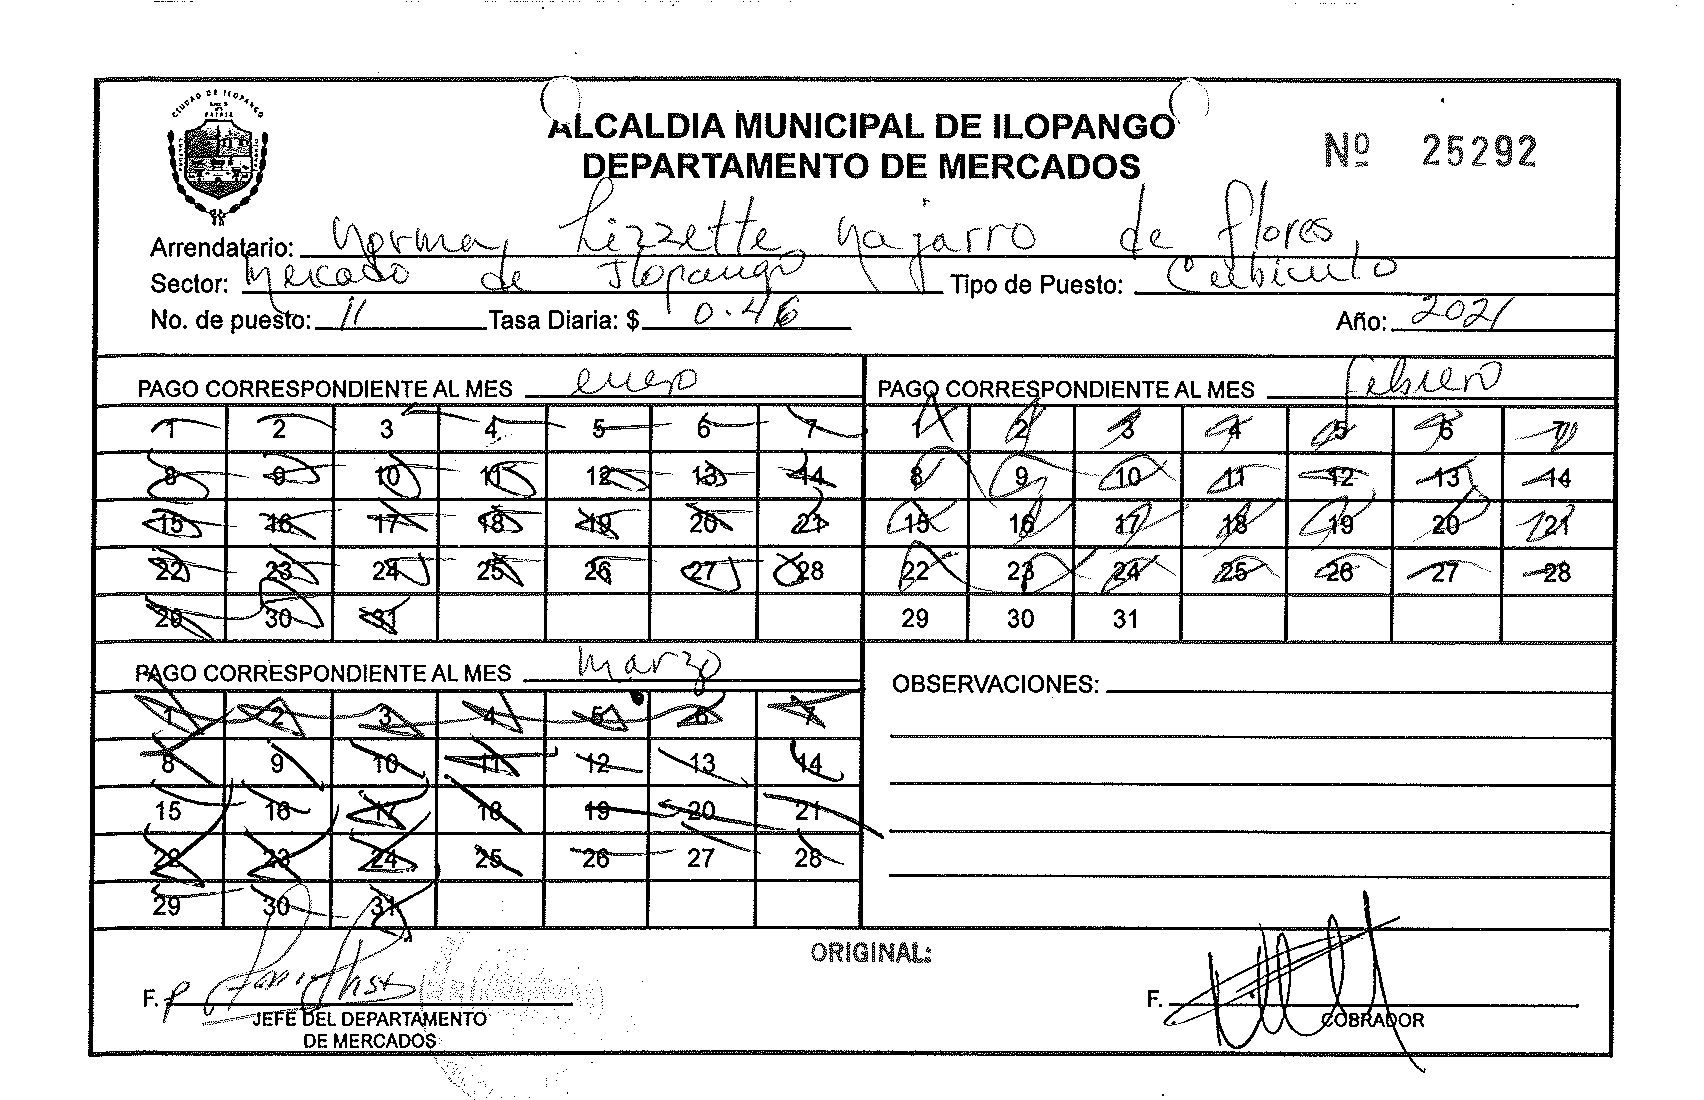 CIUDAD DE ILOPANGO
PATRIA
ALCALDIA MUNICIPAL DE ILOPANGO
DEPARTAMENTO DE MERCADOS
Nº 25292
Arrendatario: Norma Lizzette Najarro de Flores
Sector: Mercado de Ilopango Tipo de Puesto: Cubiculo
No. de puesto: 11 Tasa Diaria: $ 0.46 Año: 2021
PAGO CORRESPONDIENTE AL MES enero
1 2 3 4 5 6 7
8 9 10 11 12 13 14
15 16 17 18 19 20 21
22 23 24 25 26 27 28
29 30 31
PAGO CORRESPONDIENTE AL MES febrero
1 2 3 4 5 6 7
8 9 10 11 12 13 14
15 16 17 18 19 20 21
22 23 24 25 26 27 28
29 30 31
PAGO CORRESPONDIENTE AL MES marzo
1 2 3 4 5 6 7
8 9 10 11 12 13 14
15 16 17 18 19 20 21
22 23 24 25 26 27 28
29 30 31
OBSERVACIONES:
ORIGINAL:
F. P
JEFE DEL DEPARTAMENTO
DE MERCADOS
F.
COBRADOR